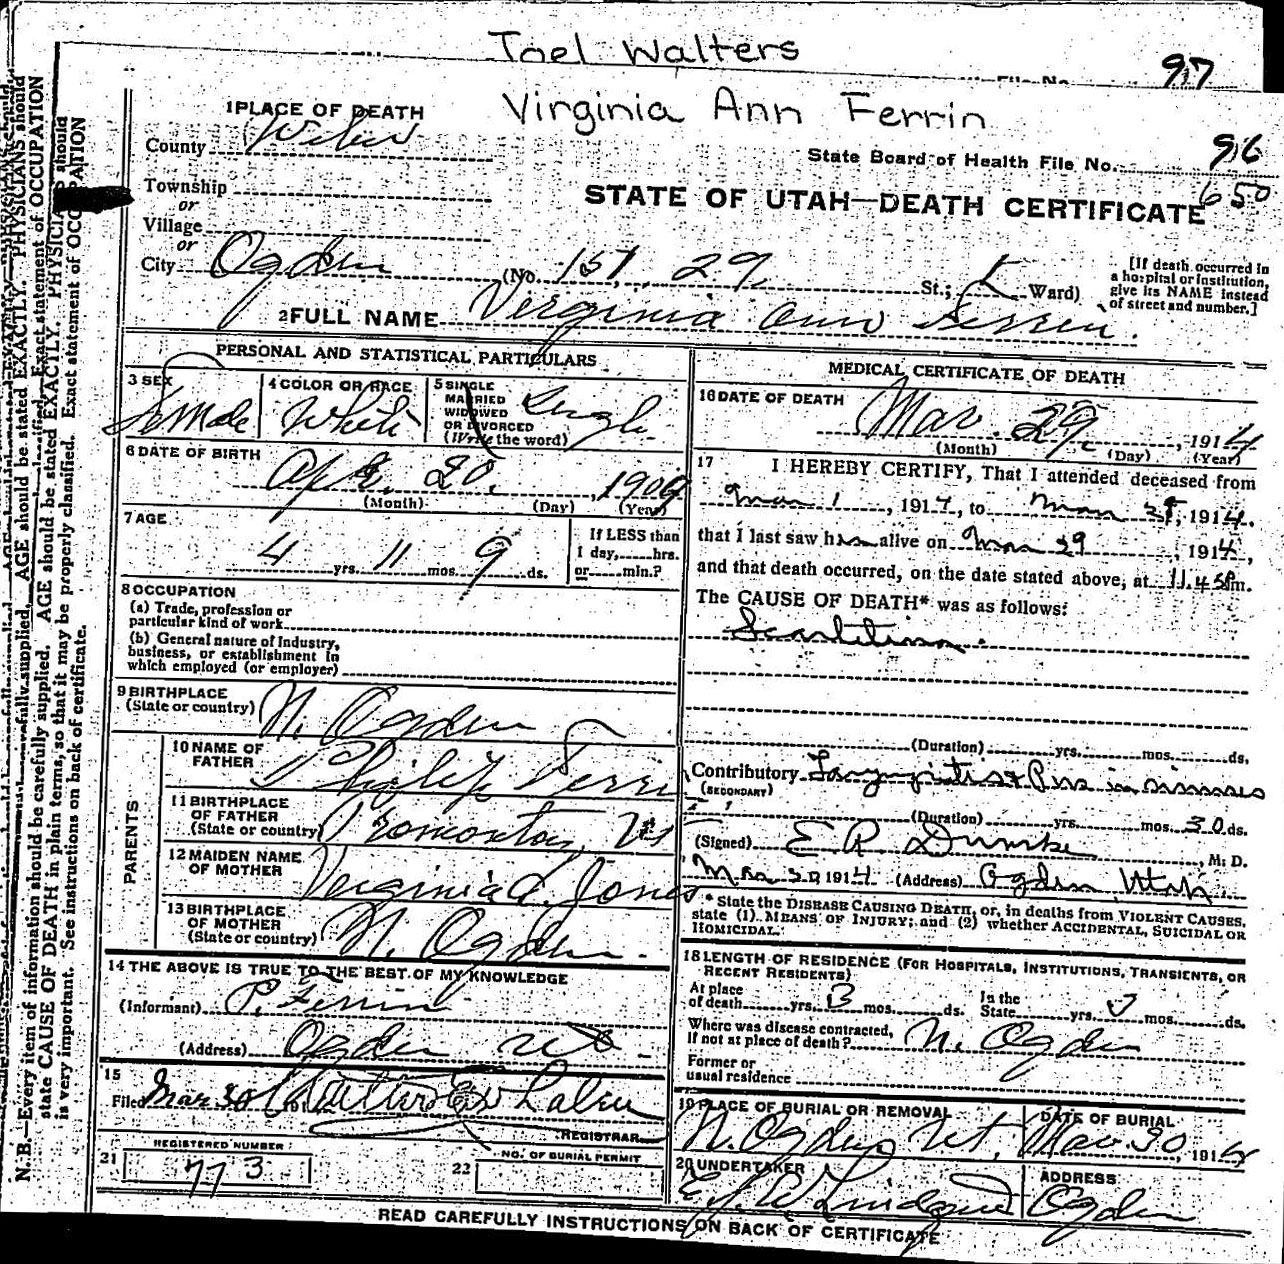 Joel Walters
File No. 97
Virginia Ann Ferrin
1 PLACE OF DEATH
County Weber
State Board of Health File No. 96
650
Township
or
STATE OF UTAH—DEATH CERTIFICATE
Village
or
City Ogden (No. 151, 29, St.; 5 Ward)
[If death occurred in
a hospital or institution,
give its NAME instead
of street and number.]
2 FULL NAME Virginia Ann Ferrin
PERSONAL AND STATISTICAL PARTICULARS
3 SEX Female
4 COLOR OR RACE White
5 SINGLE
MARRIED
WIDOWED
OR DIVORCED
(Write the word) Single
6 DATE OF BIRTH
Apr. 20, 1909
(Month) (Day) (Year)
7 AGE
4 yrs. 11 mos. 9 ds.
If LESS than
1 day, hrs.
or min.?
8 OCCUPATION
(a) Trade, profession or
particular kind of work
(b) General nature of Industry,
business, or establishment in
which employed (or employer)
9 BIRTHPLACE
(State or country) N. Ogden
PARENTS
10 NAME OF
FATHER Philip Ferrin
11 BIRTHPLACE
OF FATHER
(State or country)
12 MAIDEN NAME
OF MOTHER Virginia A. Jones
13 BIRTHPLACE
OF MOTHER
(State or country) N. Ogden.
14 THE ABOVE IS TRUE TO THE BEST OF MY KNOWLEDGE
(Informant) P. Ferrin
(Address) Ogden Ut
15
Filed Mar 30
REGISTRAR
REGISTERED NUMBER
21 773
NO. OF BURIAL PERMIT
22
MEDICAL CERTIFICATE OF DEATH
16 DATE OF DEATH
Mar. 29, 1914
(Month) (Day) (Year)
17 I HEREBY CERTIFY, That I attended deceased from
Mar 1, 1914, to Mar 29, 1914.
that I last saw her alive on Mar 29, 1914,
and that death occurred, on the date stated above, at 11.45 Pm.
The CAUSE OF DEATH* was as follows:
Scarletina.
(Duration) yrs. mos. ds.
Contributory Laryngitis & Pus in sinuses
(SECONDARY)
(Duration) yrs. mos. 30 ds.
(Signed) E R Dumke, M. D.
Mar 30 1914 (Address) Ogden Utah.
* State the DISEASE CAUSING DEATH, or, in deaths from VIOLENT CAUSES,
state (1) MEANS OF INJURY; and (2) whether ACCIDENTAL, SUICIDAL OR
HOMICIDAL.
18 LENGTH OF RESIDENCE (FOR HOSPITALS, INSTITUTIONS, TRANSIENTS, OR
RECENT RESIDENTS)
At place
of death yrs. 3 mos. ds.
In the
State yrs. mos. ds.
Where was disease contracted,
if not at place of death? N. Ogden
Former or
usual residence
19 PLACE OF BURIAL OR REMOVAL
N. Ogden, Ut.
DATE OF BURIAL
Mar 30, 1914
20 UNDERTAKER
Lindquist
ADDRESS
Ogden
READ CAREFULLY INSTRUCTIONS ON BACK OF CERTIFICATE
N. B.—Every item of information should be carefully supplied. AGE should be stated EXACTLY. PHYSICIANS should
state CAUSE OF DEATH in plain terms, so that it may be properly classified. Exact statement of OCCUPATION
is very important. See instructions on back of certificate.